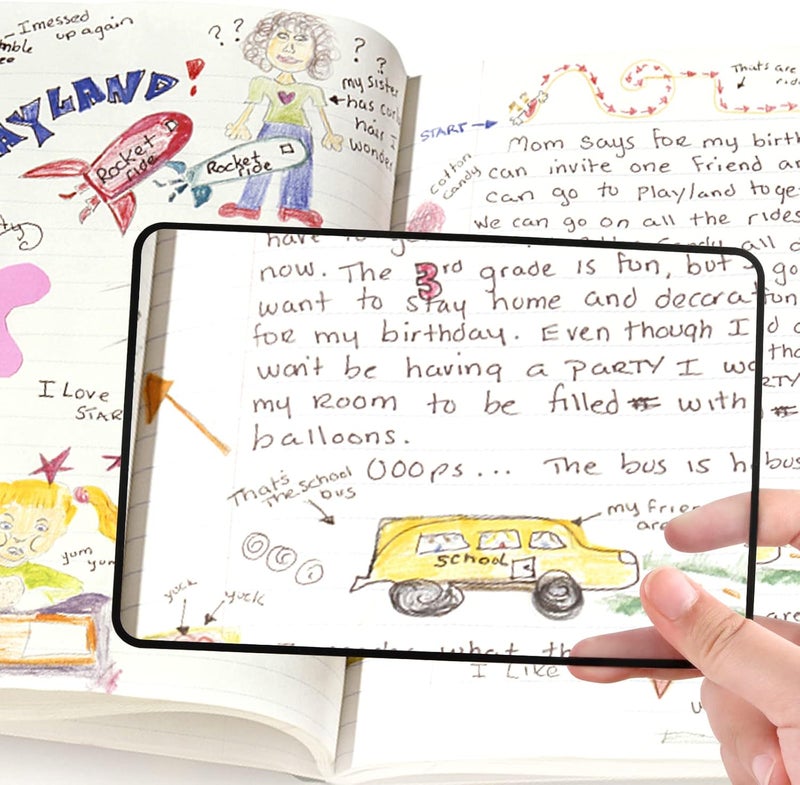 I messed
up again
AYLAND!
Rocket
ride
Rocket
ride
? ?
? ?
my sister
has curl
hair I
wonder
I Love
STAR
yum
yum
START
Cotton
Candy
Thats are
rid
Mom says for my birth
can invite one friend an
can go to Playland toge
We can go on all the rides
now. The 3rd grade is fun, but
want to stay home and decora
for my birthday. Even though I
won't be having a PARTY I wo
my room to be filled with
balloons.
OOOps... The bus is h
bus
That's
The school
bus
my frie
are
SCHOOL
yuck
yuck
what th
I Like